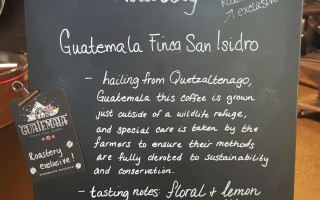 Roastery
exclusive
Guatemala Finca San Isidro
- hailing from Quetzaltenago,
Guatemala this coffee is grown
just outside of a wildlife refuge,
and special care is taken by the
farmers to ensure their methods
are fully devoted to sustainability
and conservation.
- tasting notes: floral & lemon
GUATEMALA
Roastery
exclusive!